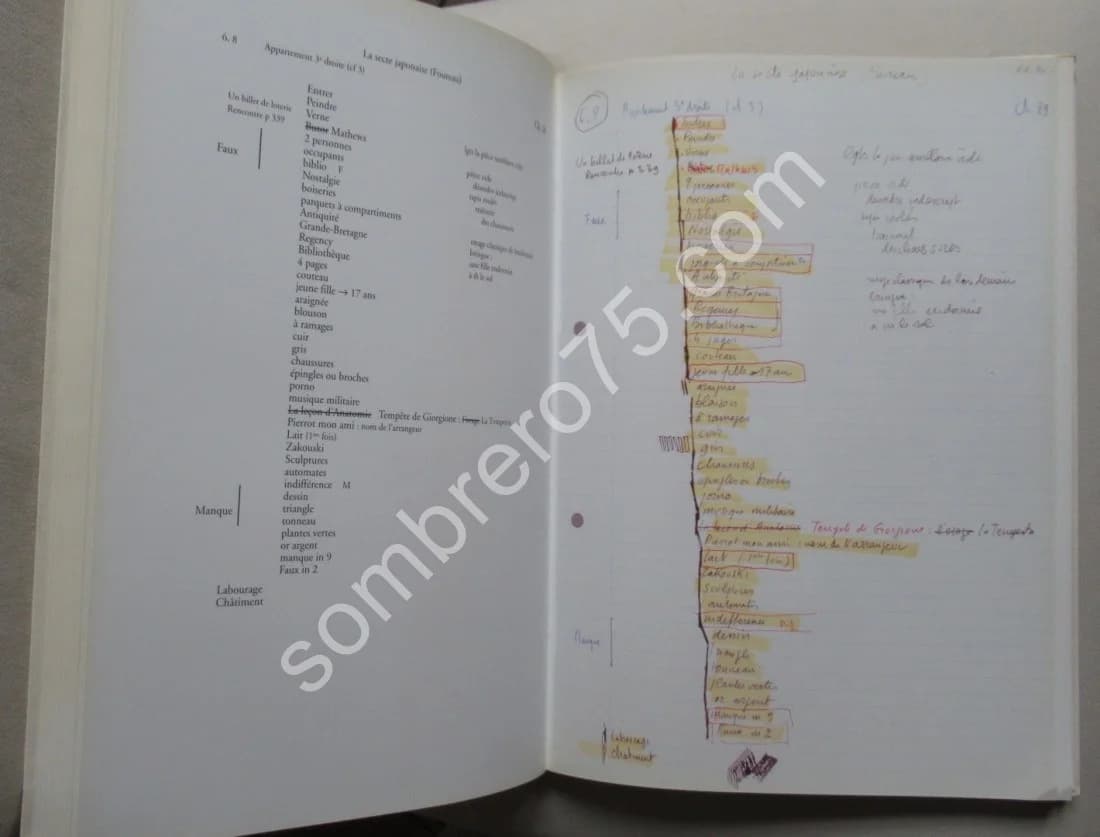 6. 8
La secte japonaise (Foureau)
Appartement 3e droite (cf 3)
Un billet de loterie
Rencontre p 339
Faux
Entrer
Peindre
Verne
Butor Mathews
2 personnes
occupants
biblio F
Nostalgie
boiseries
parquets à compartiments
Antiquité
Grande-Bretagne
Regency
Bibliothèque
4 pages
couteau
jeune fille → 17 ans
araignée
blouson
à ramages
cuir
gris
chaussures
épingles ou broches
porno
musique militaire
La leçon d'Anatomie Tempête de Giorgione : La Tempesta
Pierrot mon ami : nom de l'arrangeur
Lair (1ère fois)
Zakouski
Sculptures
automates
indifférence M
Manque
dessin
triangle
tonneau
plantes vertes
or argent
manque en 9
Faux en 2
Labourage
Châtiment
pièce vide
tapis roulés
des chaussures
une fille endormie
La secte japonaise
6.8
Appartement 3e droite (cf 3)
Un billet de loterie
Rencontre p 339
Faux
Entrer
Peindre
Verne
Mathews
2 personnes
occupants
biblio
Nostalgie
Antiquité
Grande Bretagne
Regency
Bibliothèque
4 pages
couteau
jeune fille → 17 ans
araignée
blouson
à ramages
cuir
gris
chaussures
épingles ou broches
porno
musique militaire
Tempête de Giorgione : La Tempesta
Pierrot mon ami : nom de l'arrangeur
Lair (1ère fois)
Zakouski
Sculptures
automates
indifférence
Manque
dessin
triangle
tonneau
plantes vertes
or argent
manque en 9
Faux en 2
Labourage
Châtiment
sombrero75.com